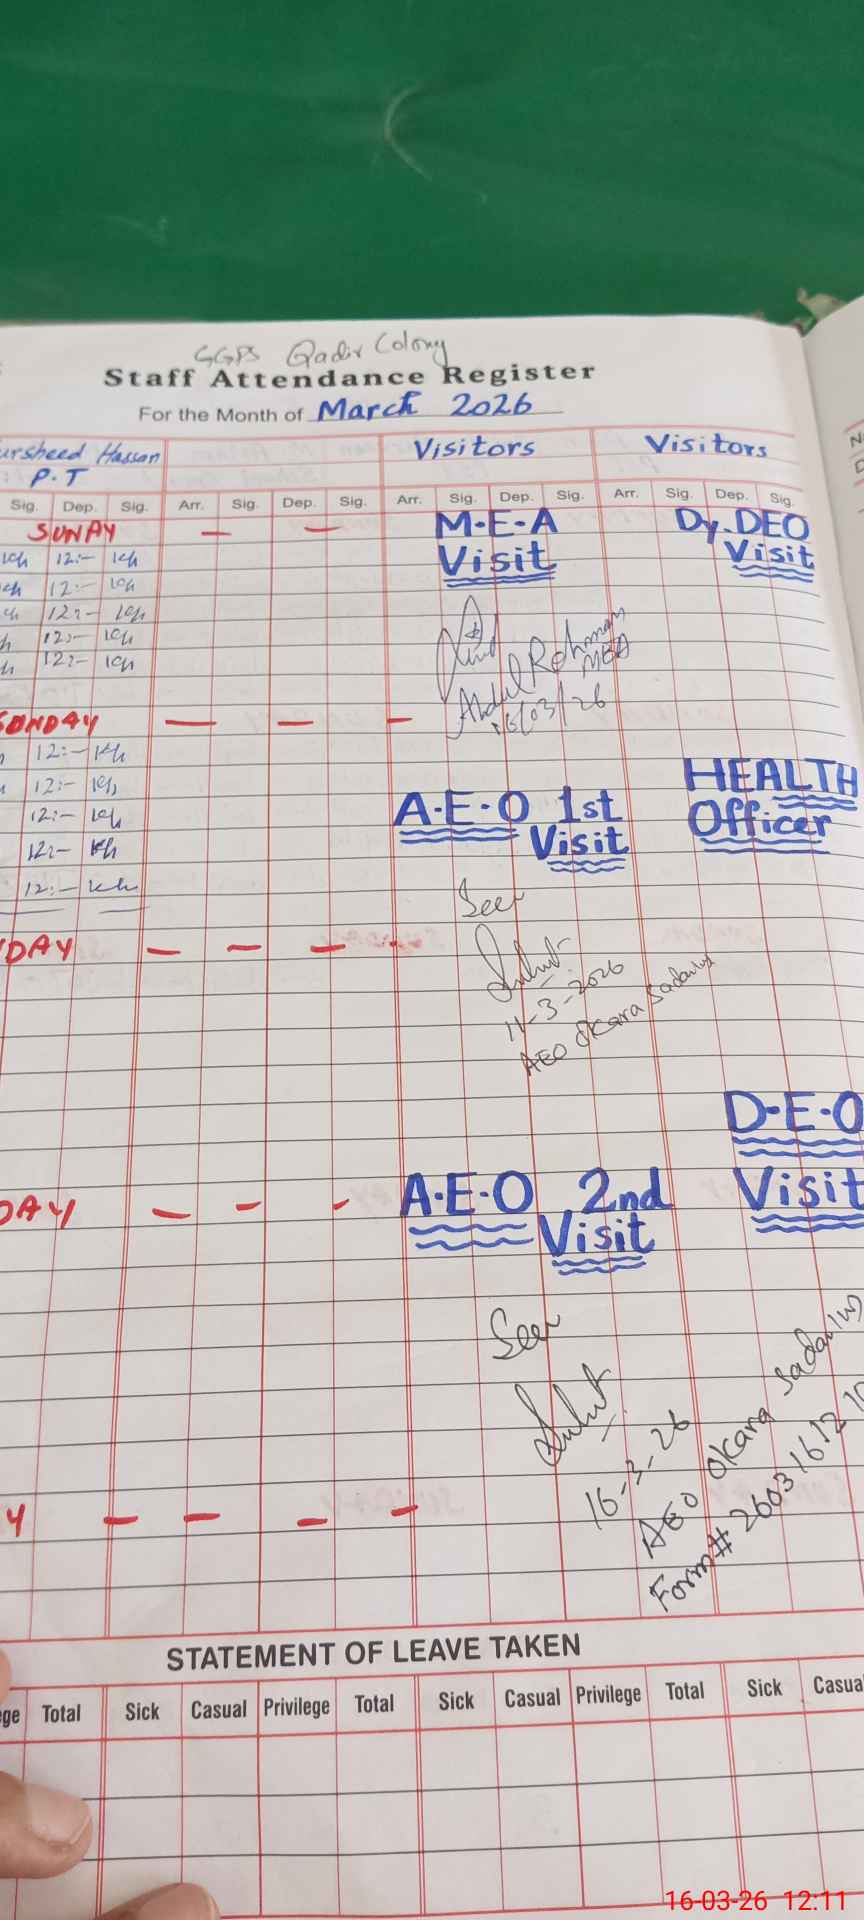 GGPS Qadir Colony
Staff Attendance Register
For the Month of March 2026
ursheed Hassan
P.T
Visitors
Visitors
Sig. Dep. Sig. Arr. Sig. Dep. Sig. Arr. Sig. Dep. Sig. Arr. Sig. Dep. Sig.
SUNAY
M-E-A
Visit
Dy. DEO
Visit
12:-
12:-
12:-
12:-
12:-
Abdul Rehman
MEA
03/26
SUNDAY
12:-
12:-
12:-
12:-
12:-
A-E-O 1st
Visit
HEALTH
Officer
Seen
11-3-2026
AEO Okara
DAY
D-E-O
Visit
DAY
A-E-O 2nd
Visit
Seen
16-3-26
AEO Okara
Form# 26031612
Y
STATEMENT OF LEAVE TAKEN
ge Total Sick Casual Privilege Total Sick Casual Privilege Total Sick Casua
16-03-26 12:11